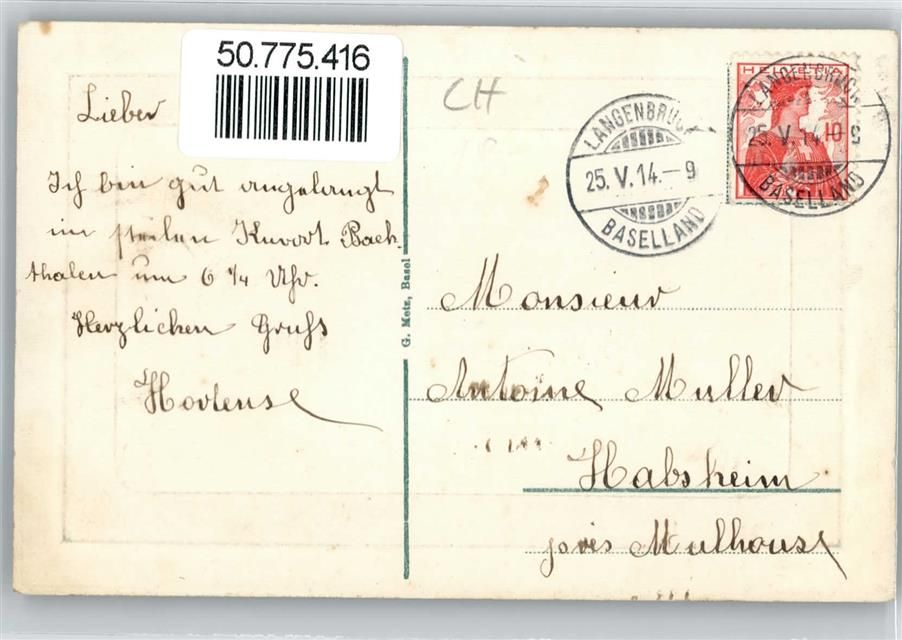 50.775.416
CH
Lieber
Ich bin gut angelangt
im stillen Kurort Bach-
thalen um 6 1/4 Uhr.
Herzlichen Gruss
Hortense
G. Metz, Basel
LANGENBRUCK
25. V. 14. – 9
BASELLAND
HELVETIA
10
LANGENBRUCK
25. V. 14 9
BASELLAND
Monsieur
Antoine Muller
Habsheim
près Mulhouse